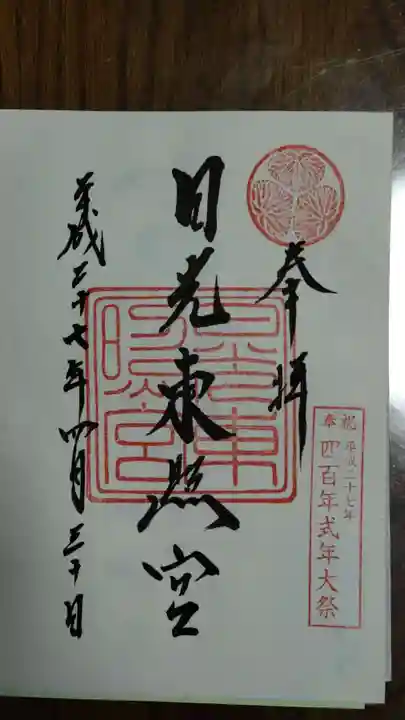 奉拝
奉祝
平成二十七年
四百年式年大祭
日光東照宮
日光東照宮
平成二十七年四月三十日